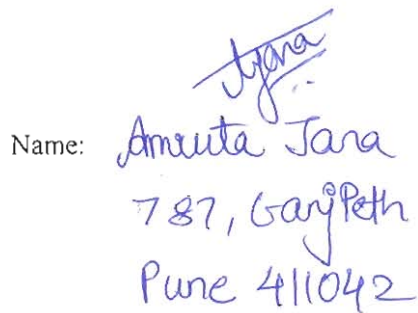 Ajana
Name: Amruta Jana
787, Ganj Peth
Pune 411042